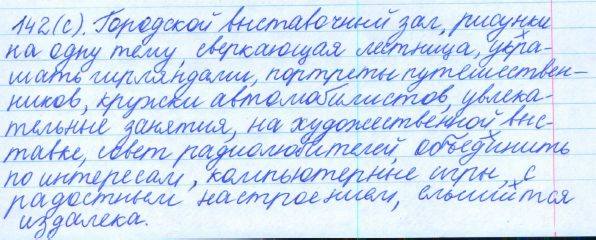 142(с). Городской выставочный зал, рисунки
на одну тему, сверкающая лестница, укра-
шать гирляндами, портреты путешествен-
ников, кружки автомобилистов, увлека-
тельные занятия, на художественной выс-
тавке, совет радиолюбителей, объединить
по интересам, компьютерные игры, с
радостным настроением, слышится
издалека.